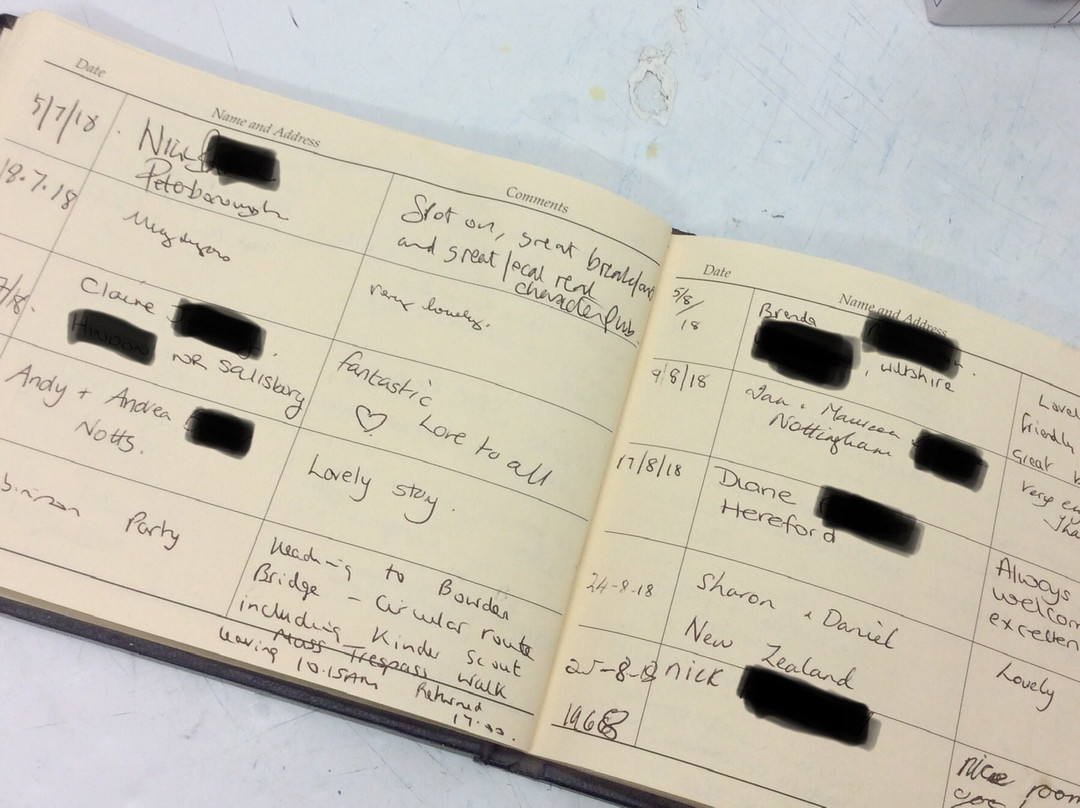 Date
Name and Address
Comments
5/7/18
Nick
Peterborough
Spot on, great breakfast
and great local real
character pub.
18.7.18
very lovely.
7/8.
Claire
NR Salisbury
fantastic
♡ Love to all
Andy + Andrea
Notts.
Lovely stay.
Party
Heading to Bowden
Bridge - Circular route
including Kinder Scout
Mass Trespass walk
leaving 10.15AM Returned
17.00.
Date
Name and Address
5/8/
18
Brenda
, Wiltshire
Lovel
friendly
Great
9/8/18
Ian + Maureen
Nottingham
Very en
Tha
17/8/18
Diane
Hereford
Always
welcom
excellen
24-8-18
Sharon + Daniel
New Zealand
Lovely
25-8-18
nick
1968
nice room